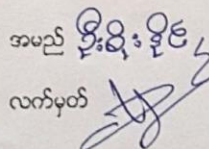 အမည် ဦးစိုးနိုင်
လက်မှတ်